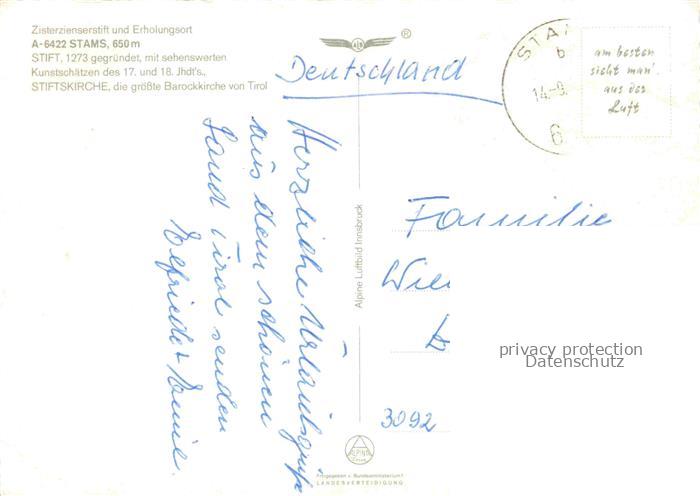 Zisterzienserstift und Erholungsort
A-6422 STAMS, 650 m
STIFT, 1273 gegründet, mit sehenswerten
Kunstschätzen des 17. und 18. Jhdt's.,
STIFTSKIRCHE, die größte Barockkirche von Tirol
ALN
®
Deutschland
STA
b
14.-9.
6
am besten
sieht man's
aus der
Luft
Herzliche Urlaubsgrüße
aus dem schönen
Land Tirol senden
Elfriede + Emil.
Alpine Luftbild Innsbruck
Familie
3092
privacy protection
Datenschutz
ALPINE
Freigegeben v. Bundesministerium f.
LANDESVERTEIDIGUNG